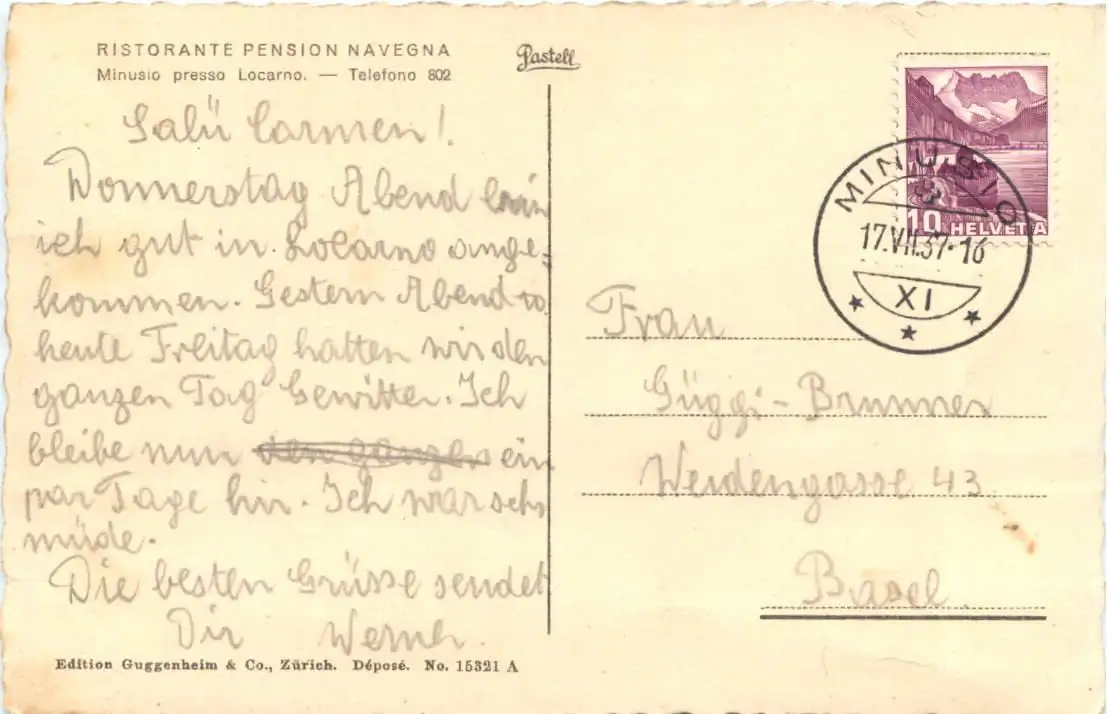 RISTORANTE PENSION NAVEGNA
Minusio presso Locarno. — Telefono 802
Pastell
Salü Carmen!
Donnerstag Abend bin
ich gut in Locarno ange-
kommen. Gestern Abend u.
heute Freitag hatten wir den
ganzen Tag Gewitter. Ich
bleibe nun den ganzen ein
par Tage hir. Ich war sehr
müde.
Die besten Grüsse sendet
Dir Werner.
Edition Guggenheim & Co., Zürich. Déposé. No. 15321 A
10 HELVETIA
MINUSIO
17.VII.37-16
XI
Frau
Güggi-Brunner
Weidengasse 43
Basel